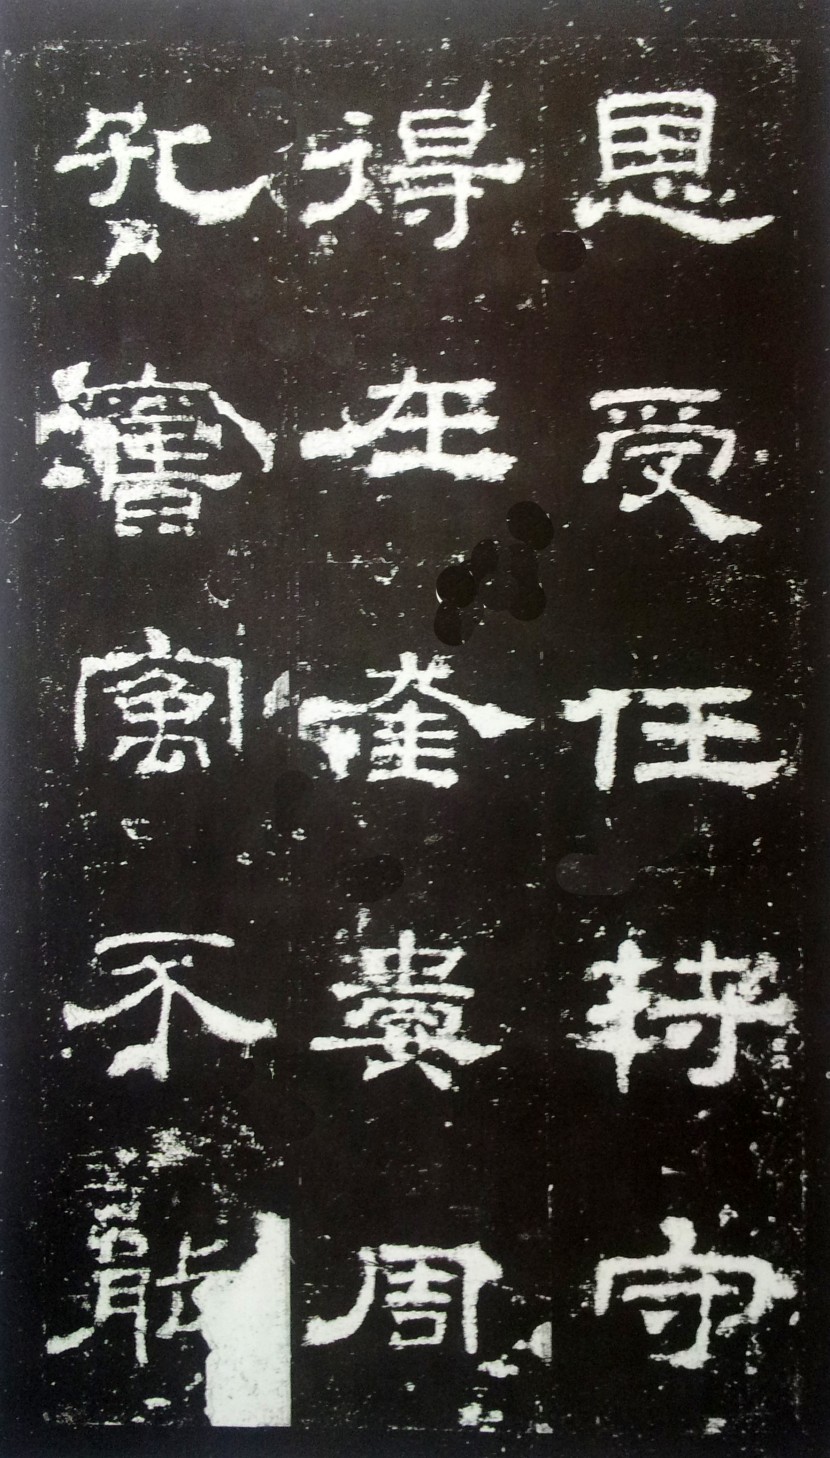 恩受任符守
得在奎婁周
孔舊寓不能